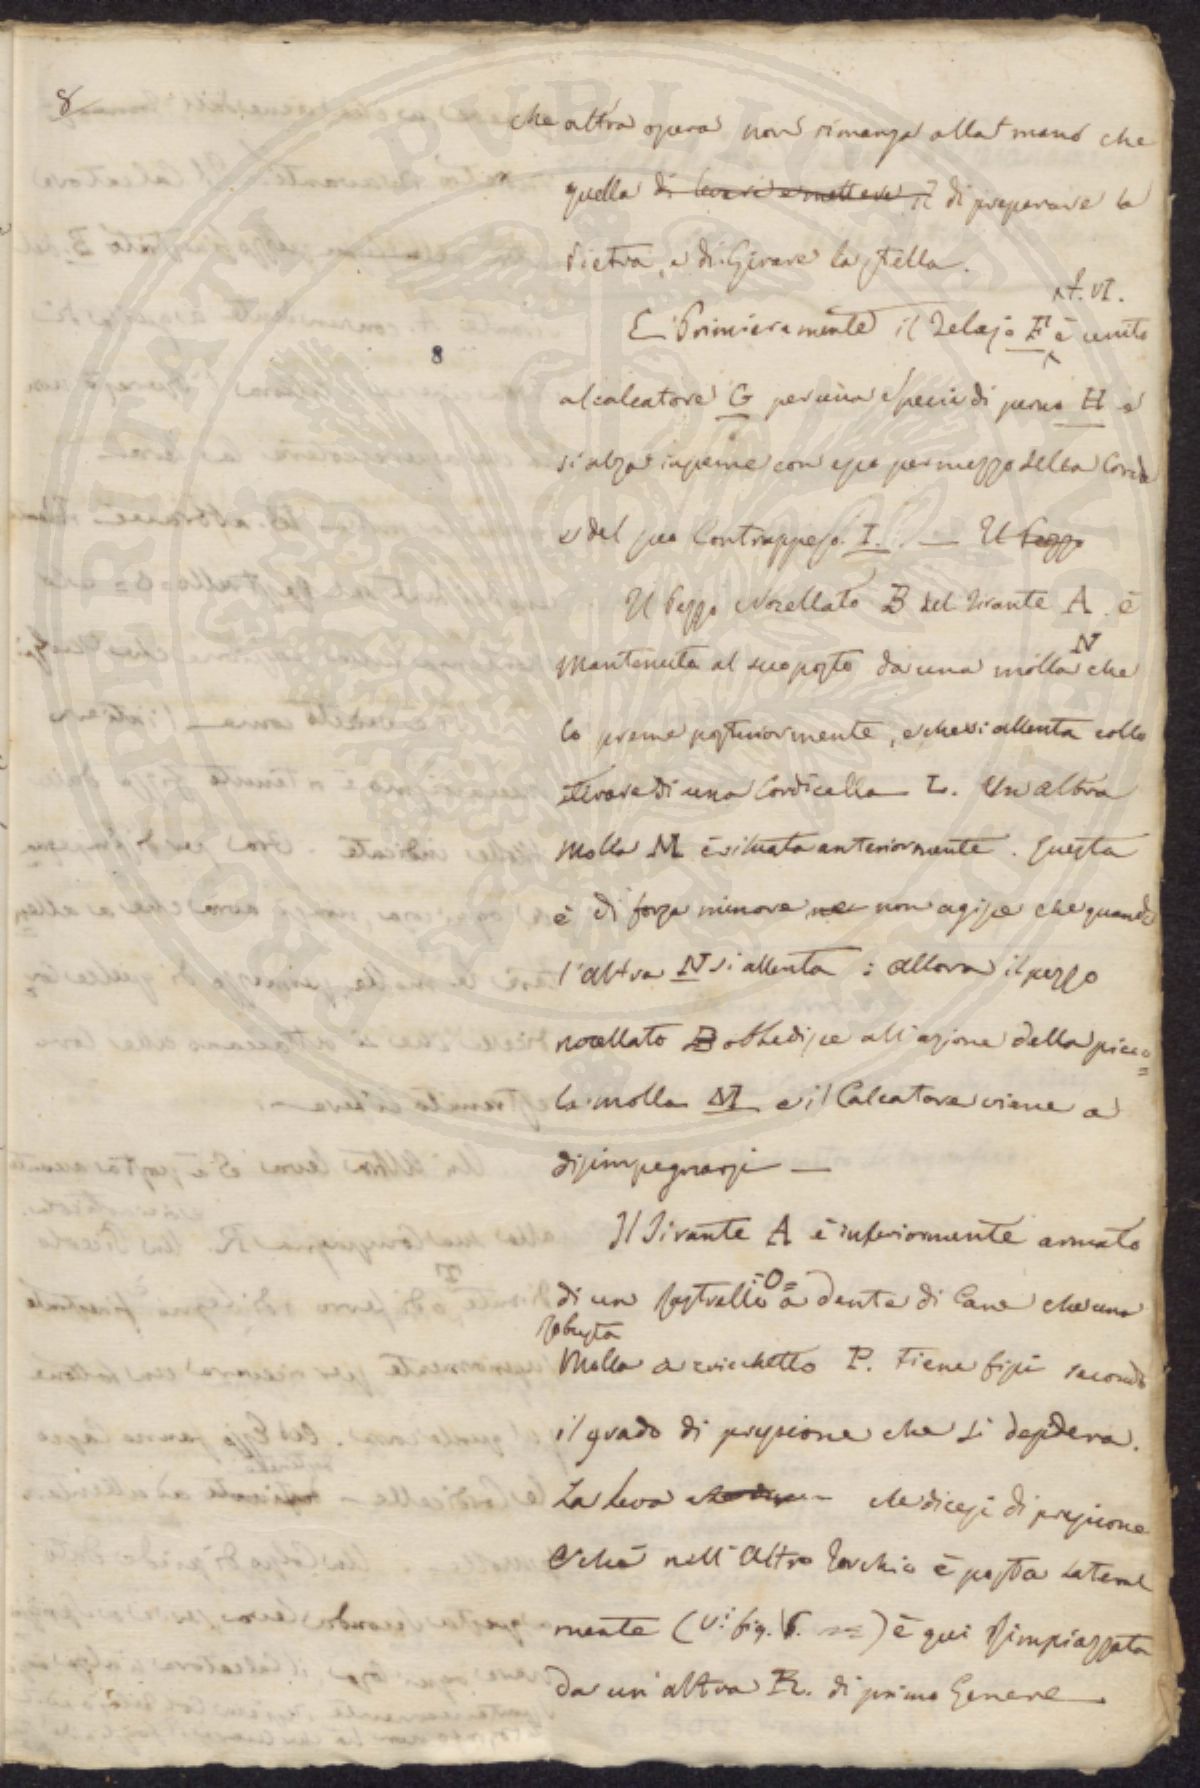 8
che altra opera non rimanga alla mano che
quella di levare e mettere il di preparare la
Pietra, e di Girare la stella.
E Primieramente il Telajo F è unito
f. VI.
8
al calcatore G per una specie di perno H e
si alza insieme con esso per mezzo della Corda
e del suo Contrappeso I. — Il Pezzo
Il Pezzo snocellato B del Tirante A è
Mantenuta al suo posto da una molla N che
lo preme posteriormente, e che si allenta collo
stirare di una Cordicella L. Un altra
Molla M è situata anteriormente. questa
è di forza minore ne non agisce che quando
l'altra N si allenta : allora il pezzo
nocellato B obbedisce all'azione della picco=
la molla M e il Calcatore viene a
disimpegnarsi —
Il Tirante A è inferiormente armato
di un Rastrello =O= a dente di Cane che una
Robusta
Molla a cricchetto P. tiene fissi secondo
il grado di pressione che si desidera.
La leva che dicesi di pressione
e che nell'altro Torchio è posta lateral
mente (V: fig. 6.) è qui Rimpiazzata
da un'altra R. di primo Genere